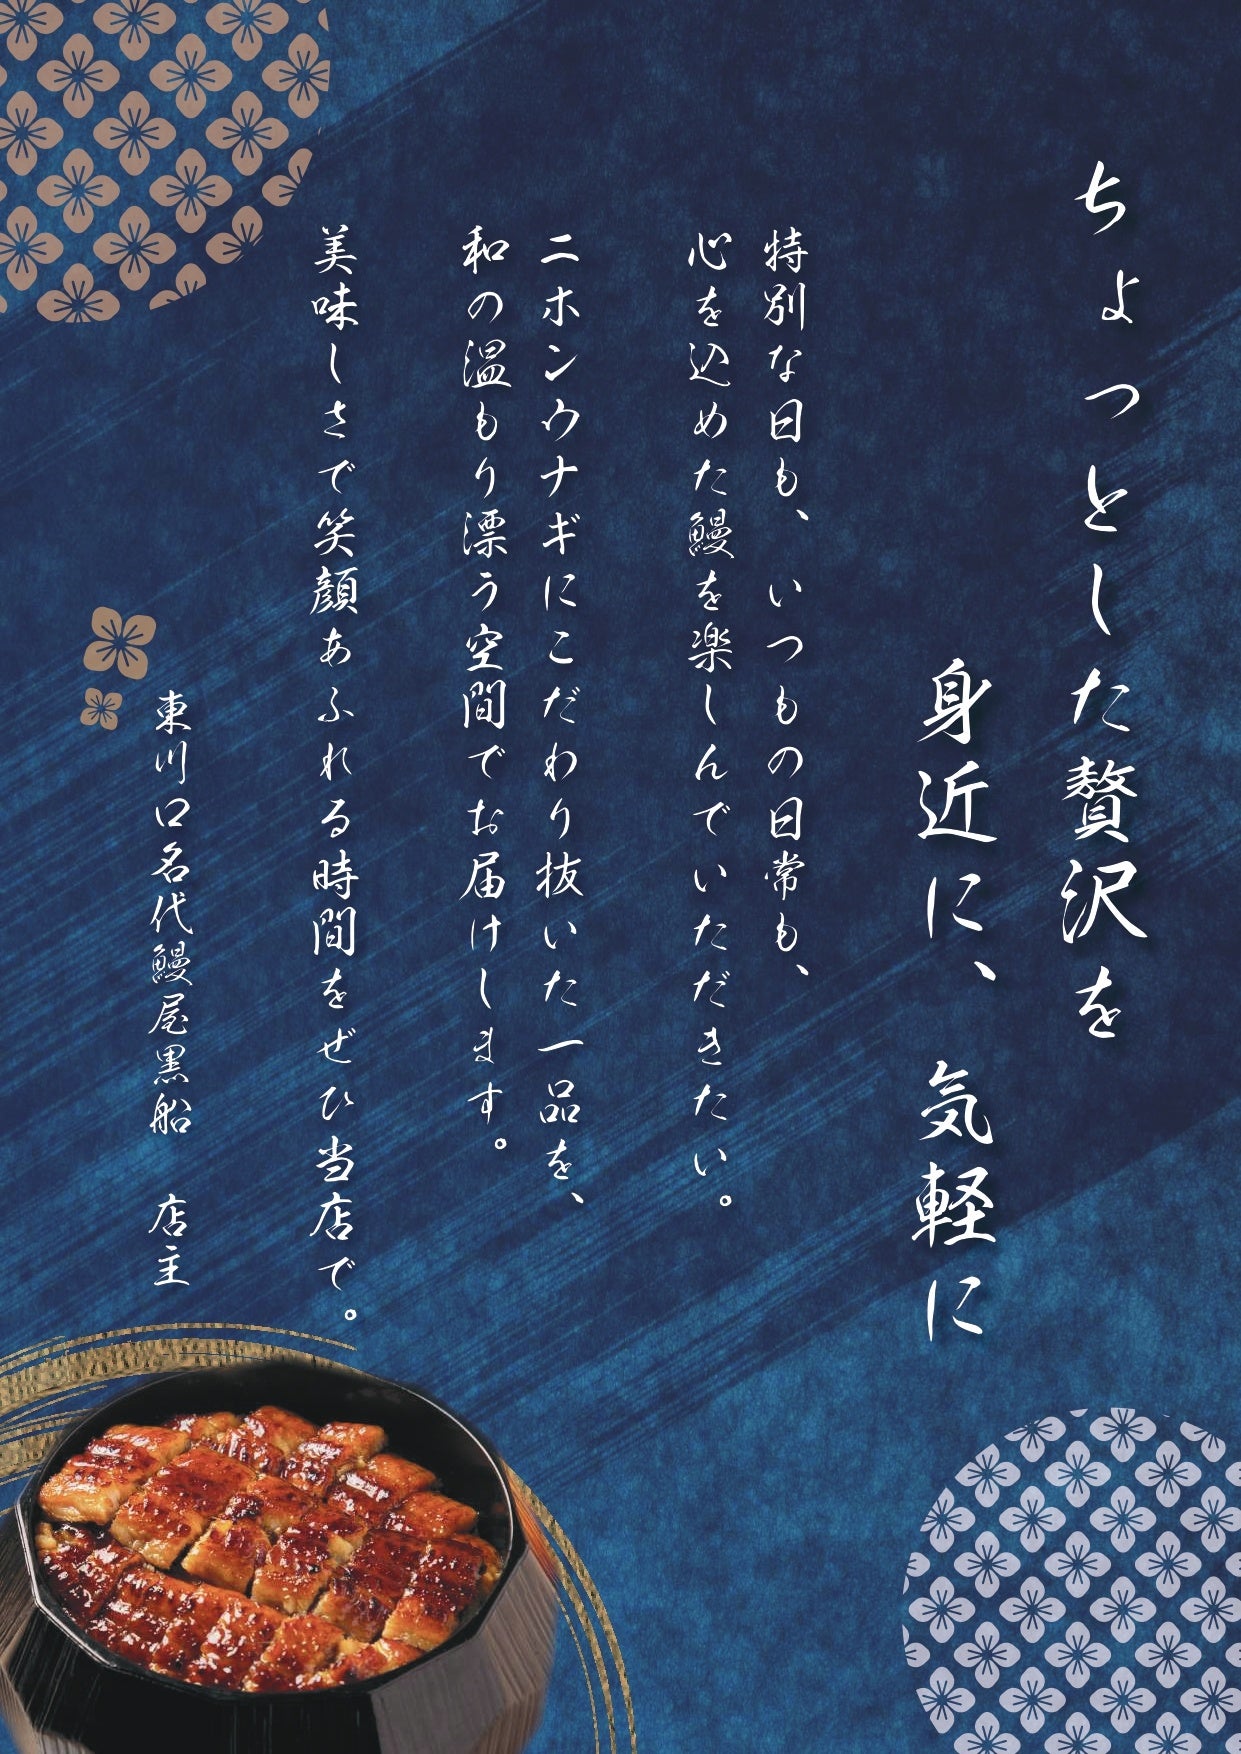 ちょっとした贅沢を
身近に、気軽に
特別な日も、いつもの日常も、
心を込めた鰻を楽しんでいただきたい。
ニホンウナギにこだわり抜いた一品を、
和の温もり漂う空間でお届けします。
美味しさで笑顔あふれる時間をぜひ当店で。
東川口名代鰻屋黒船　店主